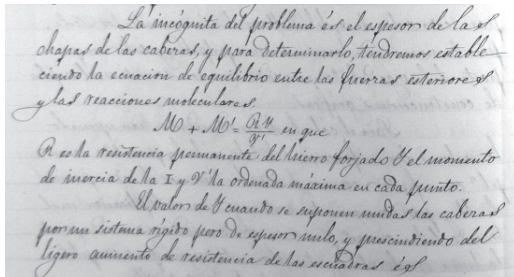 La incógnita del problema és el espesor de las
chapas de las cabezas, y para determinarlo, tendremos estable
ciendo la ecuacion de equilibrio entre las fuerzas esteriores
y las reacciones moleculares.
M + M' = R Y / V' en que
R es la resistencia permanente del hierro forjado Y el momento
de inercia de la I y V' la ordenada máxima en cada punto.
El valor de Y cuando se suponen unidas las cabezas
por un sistema rígido pero de espesor nulo, y prescindiendo del
ligero aumento de resistencia de las escuadras és